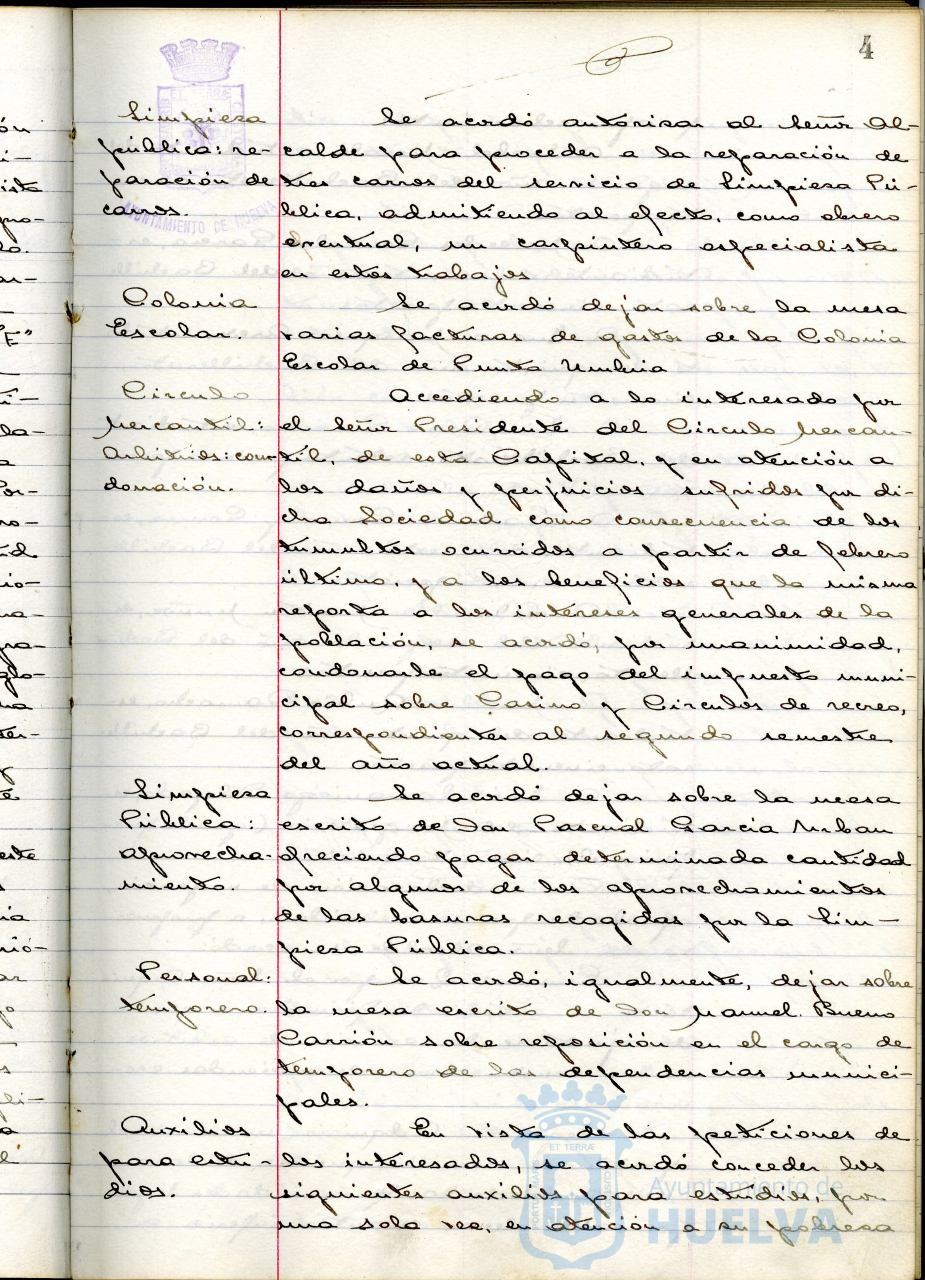 4
Limpieza
pública: re-
paración de
carros.
Se acordó autorizar al Señor Al-
calde para proceder a la reparación de
tres carros del servicio de Limpieza Pú-
blica, admitiendo al efecto, como obrero
eventual, un carpintero especialista
en estos trabajos
Colonia
Escolar.
Se acordó dejar sobre la mesa
varias facturas de gastos de la Colonia
Escolar de Punta Umbria
Circulo
Mercantil:
Arbitrios: con-
donación.
Accediendo a lo interesado por
el Señor Presidente del Circulo Mercan-
til, de esta Capital, y en atención a
los daños y perjuicios sufridos por di-
cha Sociedad como consecuencia de los
tumultos ocurridos a partir de febrero
último, y a los beneficios que la misma
reporta a los intereses generales de la
población, se acordó, por unanimidad,
condonarle el pago del impuesto muni-
cipal sobre Casino y Circulos de recreo,
correspondientes al segundo semestre
del año actual.
Limpieza
Pública:
aprovecha-
miento.
Se acordó dejar sobre la mesa
escrito de Don Pascual Garcia Urban
ofreciendo pagar determinada cantidad
por algunos de los aprovechamientos
de las basuras recogidas por la Lim-
pieza Pública.
Personal:
temporero.
Se acordó, igualmente, dejar sobre
la mesa escrito de Don Manuel Bueno
Carrión sobre reposición en el cargo de
temporero de las dependencias munici-
pales.
Auxilios
para estu-
dios.
En vista de las peticiones de
los interesados, se acordó conceder los
siguientes auxilios para estudios, por
una sola vez, en atención a su pobreza
AYUNTAMIENTO DE HUELVA
Ayuntamiento de
HUELVA